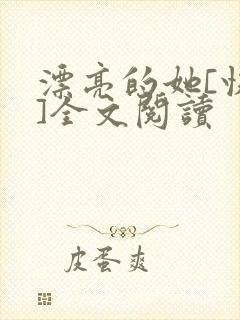 漂亮的她[
]全文閱讀
皮蛋爽